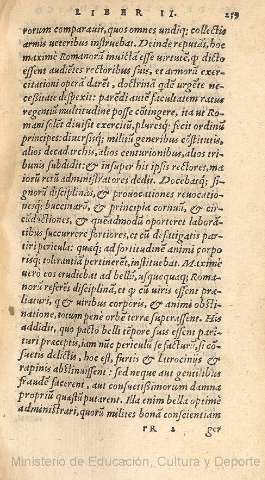 LIBER II. 219
rorum comparauit, quos omnes undiq; collectis
armis ueteribus instruebat. Deinde reputās, hoc
maximè Romanorū inuictā esse uirtutē, q̄ dicto
essent audiētes rectoribus suis, et armorū exer-
citationi operā darēt, doctrinā qdē urgēte ne-
cessitate despexit: parēdi autē facultatem ratus
regentiū multitudine posse cōtingere, ita ut Ro-
mani solēt diuisit exercitū, pluresq; fecit ordinū
principes: diuersisq; militū generibus cōstitutis,
alios decadarchis, alios centurionibus, alios tri-
bunis subdidit: & insuper his ipsis rectores, ma
iorū rerū administratores dedit. Docebatq; si-
gnorū disciplinā, & prouocationes reuocatio-
nesq; buccinarū, & principia cornuū, & cir-
cūductiones, & queadmodū oporteret laborā-
tibus succurrere fortiores, et cū defatigatis par-
tiri pericula: quaq; ad fortitudinē animi corpo-
risq; tolerantiā pertinerēt, instituebat. Maximè
uerò eos erudiebat ad bellū, usquequaq; Roma-
norū referēs disciplinā, et q̄ cū uiris essent prę-
liaturi, q & uiribus corporis, & animi obsti-
natione, totum penè orbē terrę superassent. His
addidit, quo pacto belli tēpore suis essent pari-
turi pręceptis, iam nūc periculū se facturū, si cō-
suetis delictis, hoc est, furtis & latrociniis &
rapinis abstinuissent: sed neque aut gentilibus
fraudē facerent, aut consuetissimorum damna
propriū quęstū putarent. Illa enim bella optimè
administrari, quorū milites bonā conscientiam
PR 2 ger
Ministerio de Educación, Cultura y Deporte